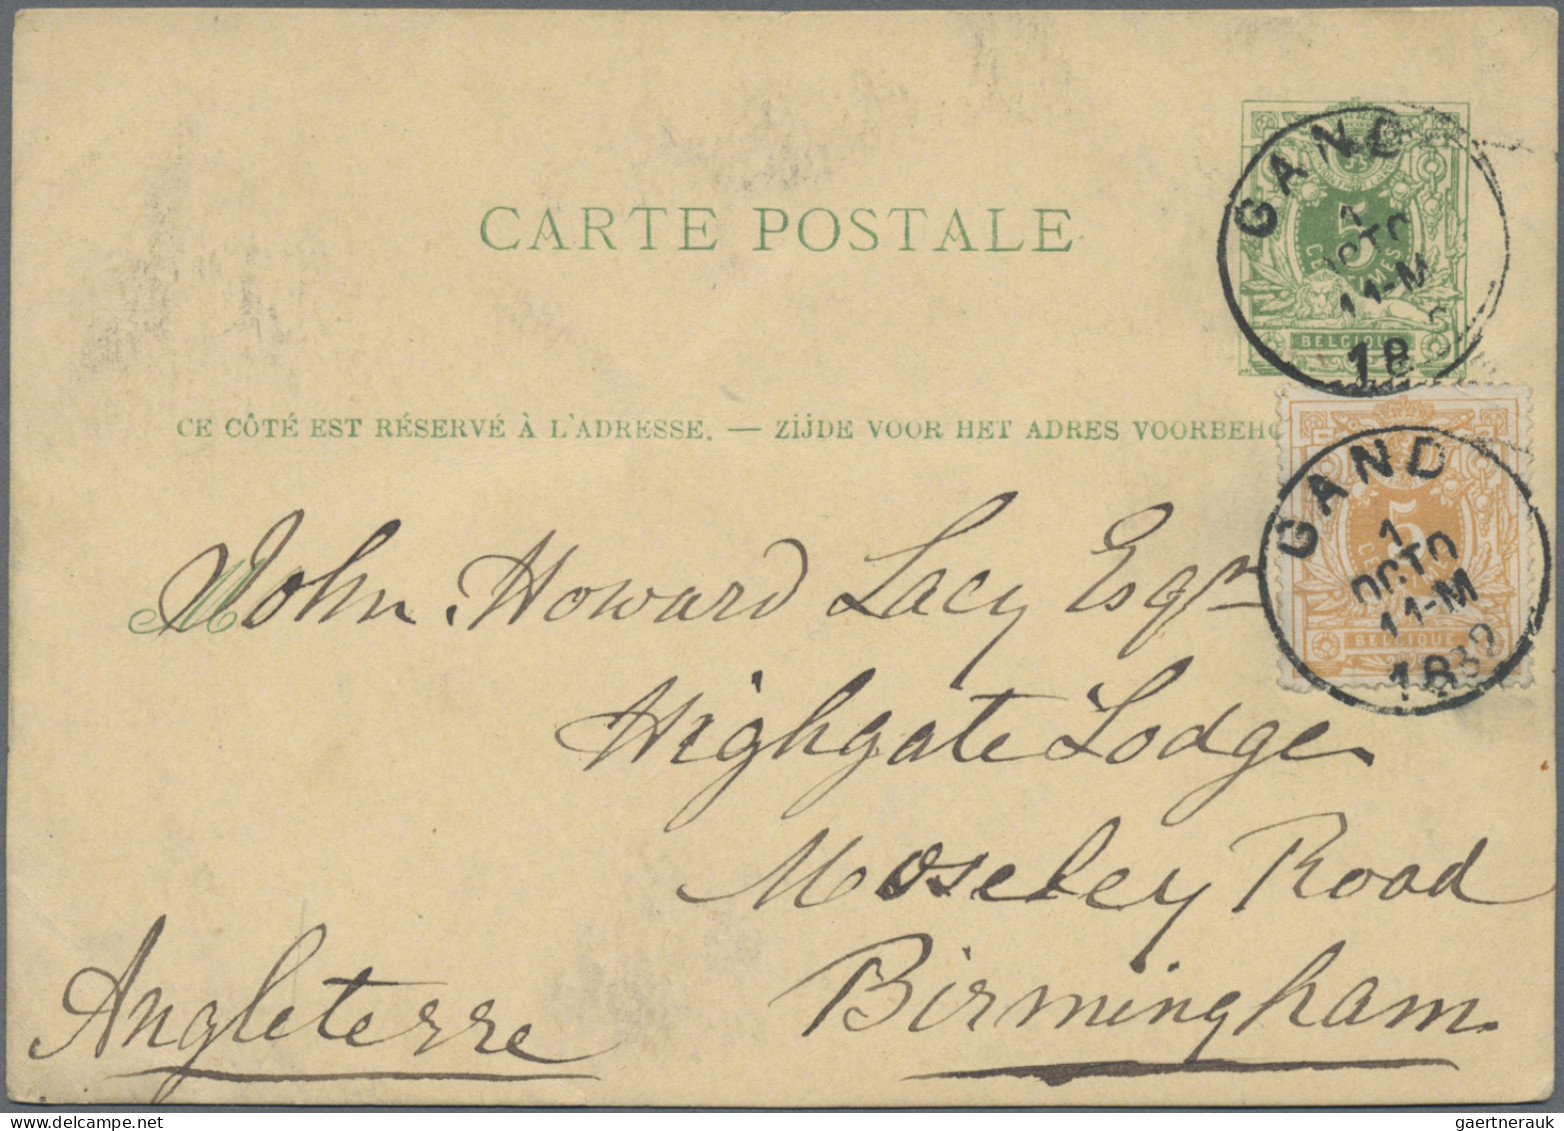 CARTE POSTALE
GAND
1
OCTO
11-M
18
5
BELGIQUE
CE CÔTÉ EST RÉSERVÉ À L'ADRESSE. — ZIJDE VOOR HET ADRES VOORBEHO
GAND
1
OCTO
11-M
18
5
BELGIQUE
M John Howard Lacy Esqre
Highgate Lodge
Moseley Road
Birmingham.
Angleterre
gaertnerauk @ delcampe.net